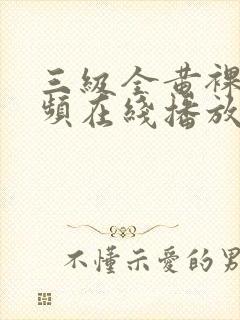 三級全黃裸
頻在綫播放
不懂示愛的男